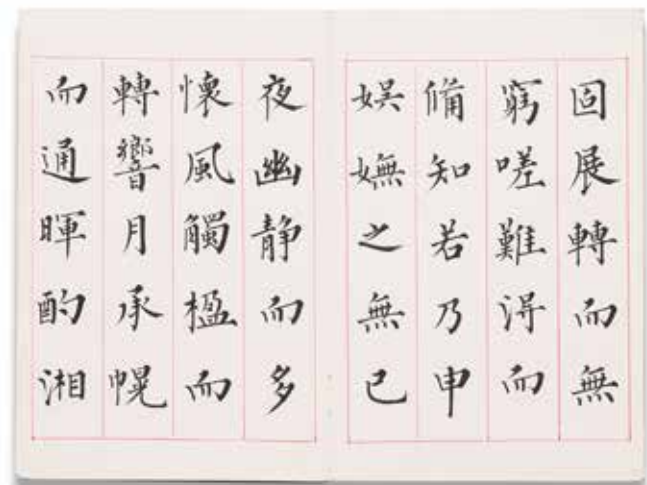 固展轉而無
窮嗟難淂而
備知若乃申
娱嫵之無已
夜幽静而多
懷風觸楹而
轉響月承幌
而通暉酌湘